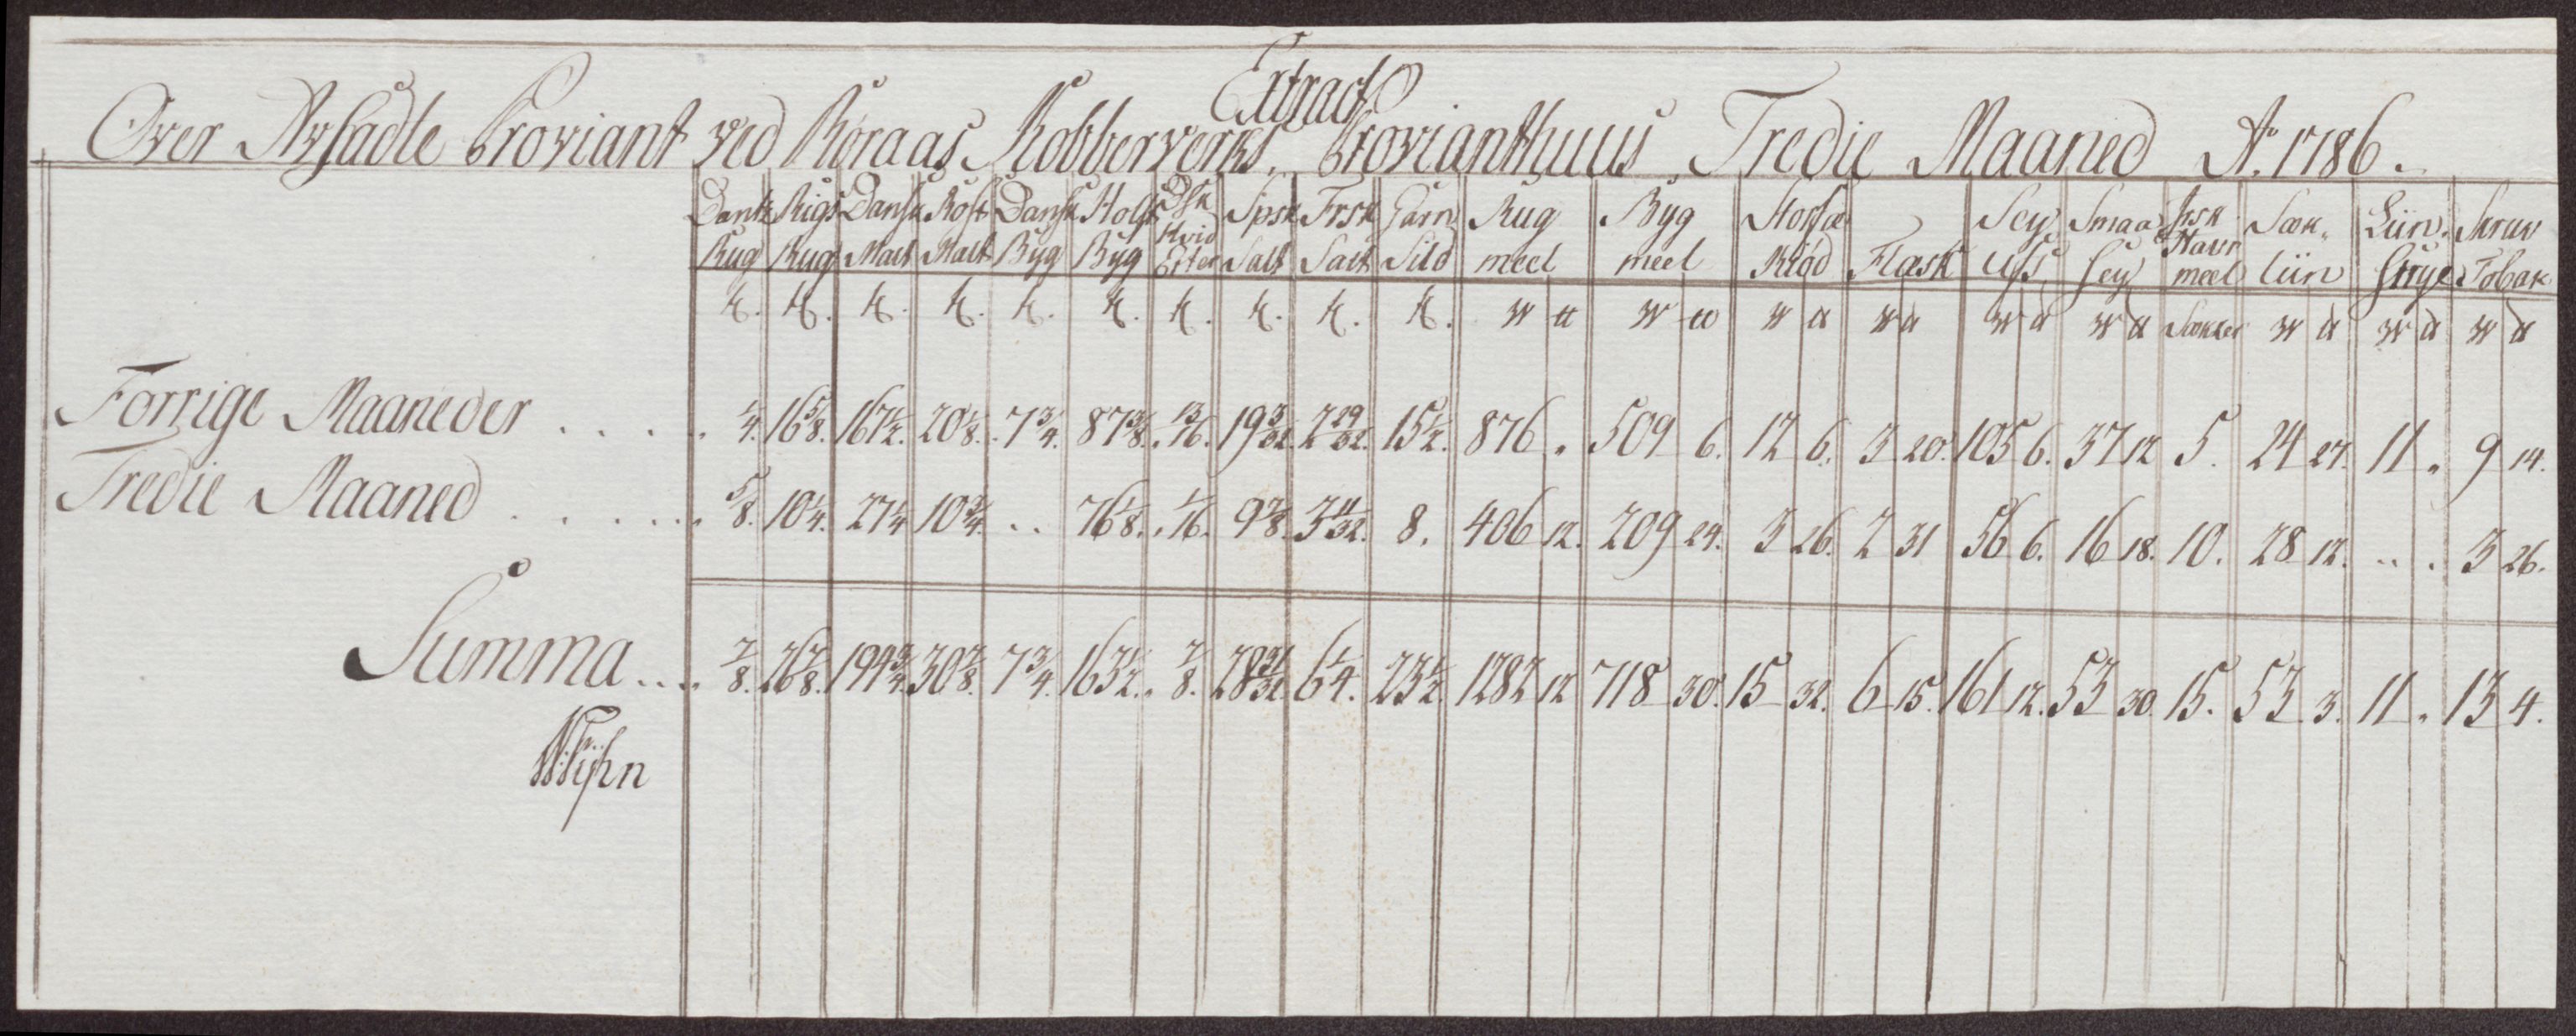 Extract
Over Avsadte Proviant ved Röraas Kobberverks Provianthuus, Tredie Maaned Ao. 1786.
Dantz Rug | Rigs Rug | Dansk Malt | Rost Malt | Dansk Byg | Holst Byg | Dsk Hvid Erter | Spsk Salt | Frsk Salt | Garn Sild | Rug meel | Byg meel | Storfæ Kiöd | Flæsk | Sey Ufs | Smaa Sey | Irsk Havr meel | Sæk liin | Liin Strye | Skruv Tobak
Sækker
Forrige Maaneder . . . . . 1/4. | 16 5/8. | 167 1/2. | 20 1/8. | 7 3/4. | 87 3/8. | 13/16. | 19 3/32. | 2 29/32. | 15 1/2. | 876 " | 509 6. | 12 6. | 3 20. | 105 6. | 37 12 | 5. | 24 27. | 11 " | 9 14.
Tredie Maaned . . . . . 5/8. | 10 1/4. | 27 1/4 | 10 3/4. | .. | 76 1/8. | 1/16. | 9 7/8. | 3 11/32. | 8. | 406 12. | 209 24. | 3 26. | 2 31 | 56 6. | 16 18. | 10. | 28 12. | .. . | 3 26.
Summa . . . 7/8. | 26 7/8. | 194 3/4. | 30 7/8. | 7 3/4. | 163 1/2. | 7/8. | 28 31/32. | 6 1/4. | 23 1/2. | 1282 12 | 718 30. | 15 32. | 6 15. | 161 12. | 53 30. | 15. | 53 3. | 11 " | 13 4.